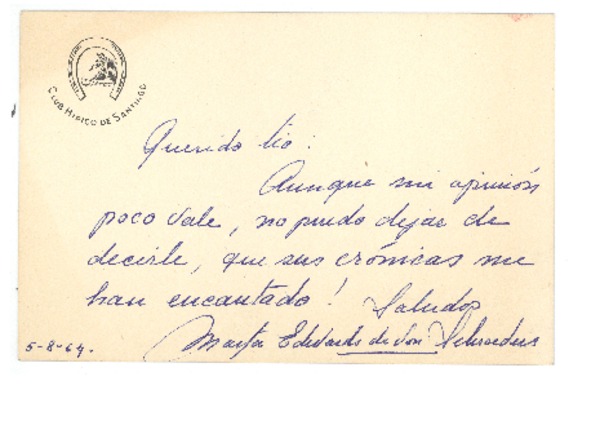 CLUB HIPICO DE SANTIAGO
Querido tío:
Aunque mi opinión
poco vale, no puedo dejar de
decirle, que sus crónicas me
han encantado! Saludos
Marta Edwards de von Schroeders
5-8-64.